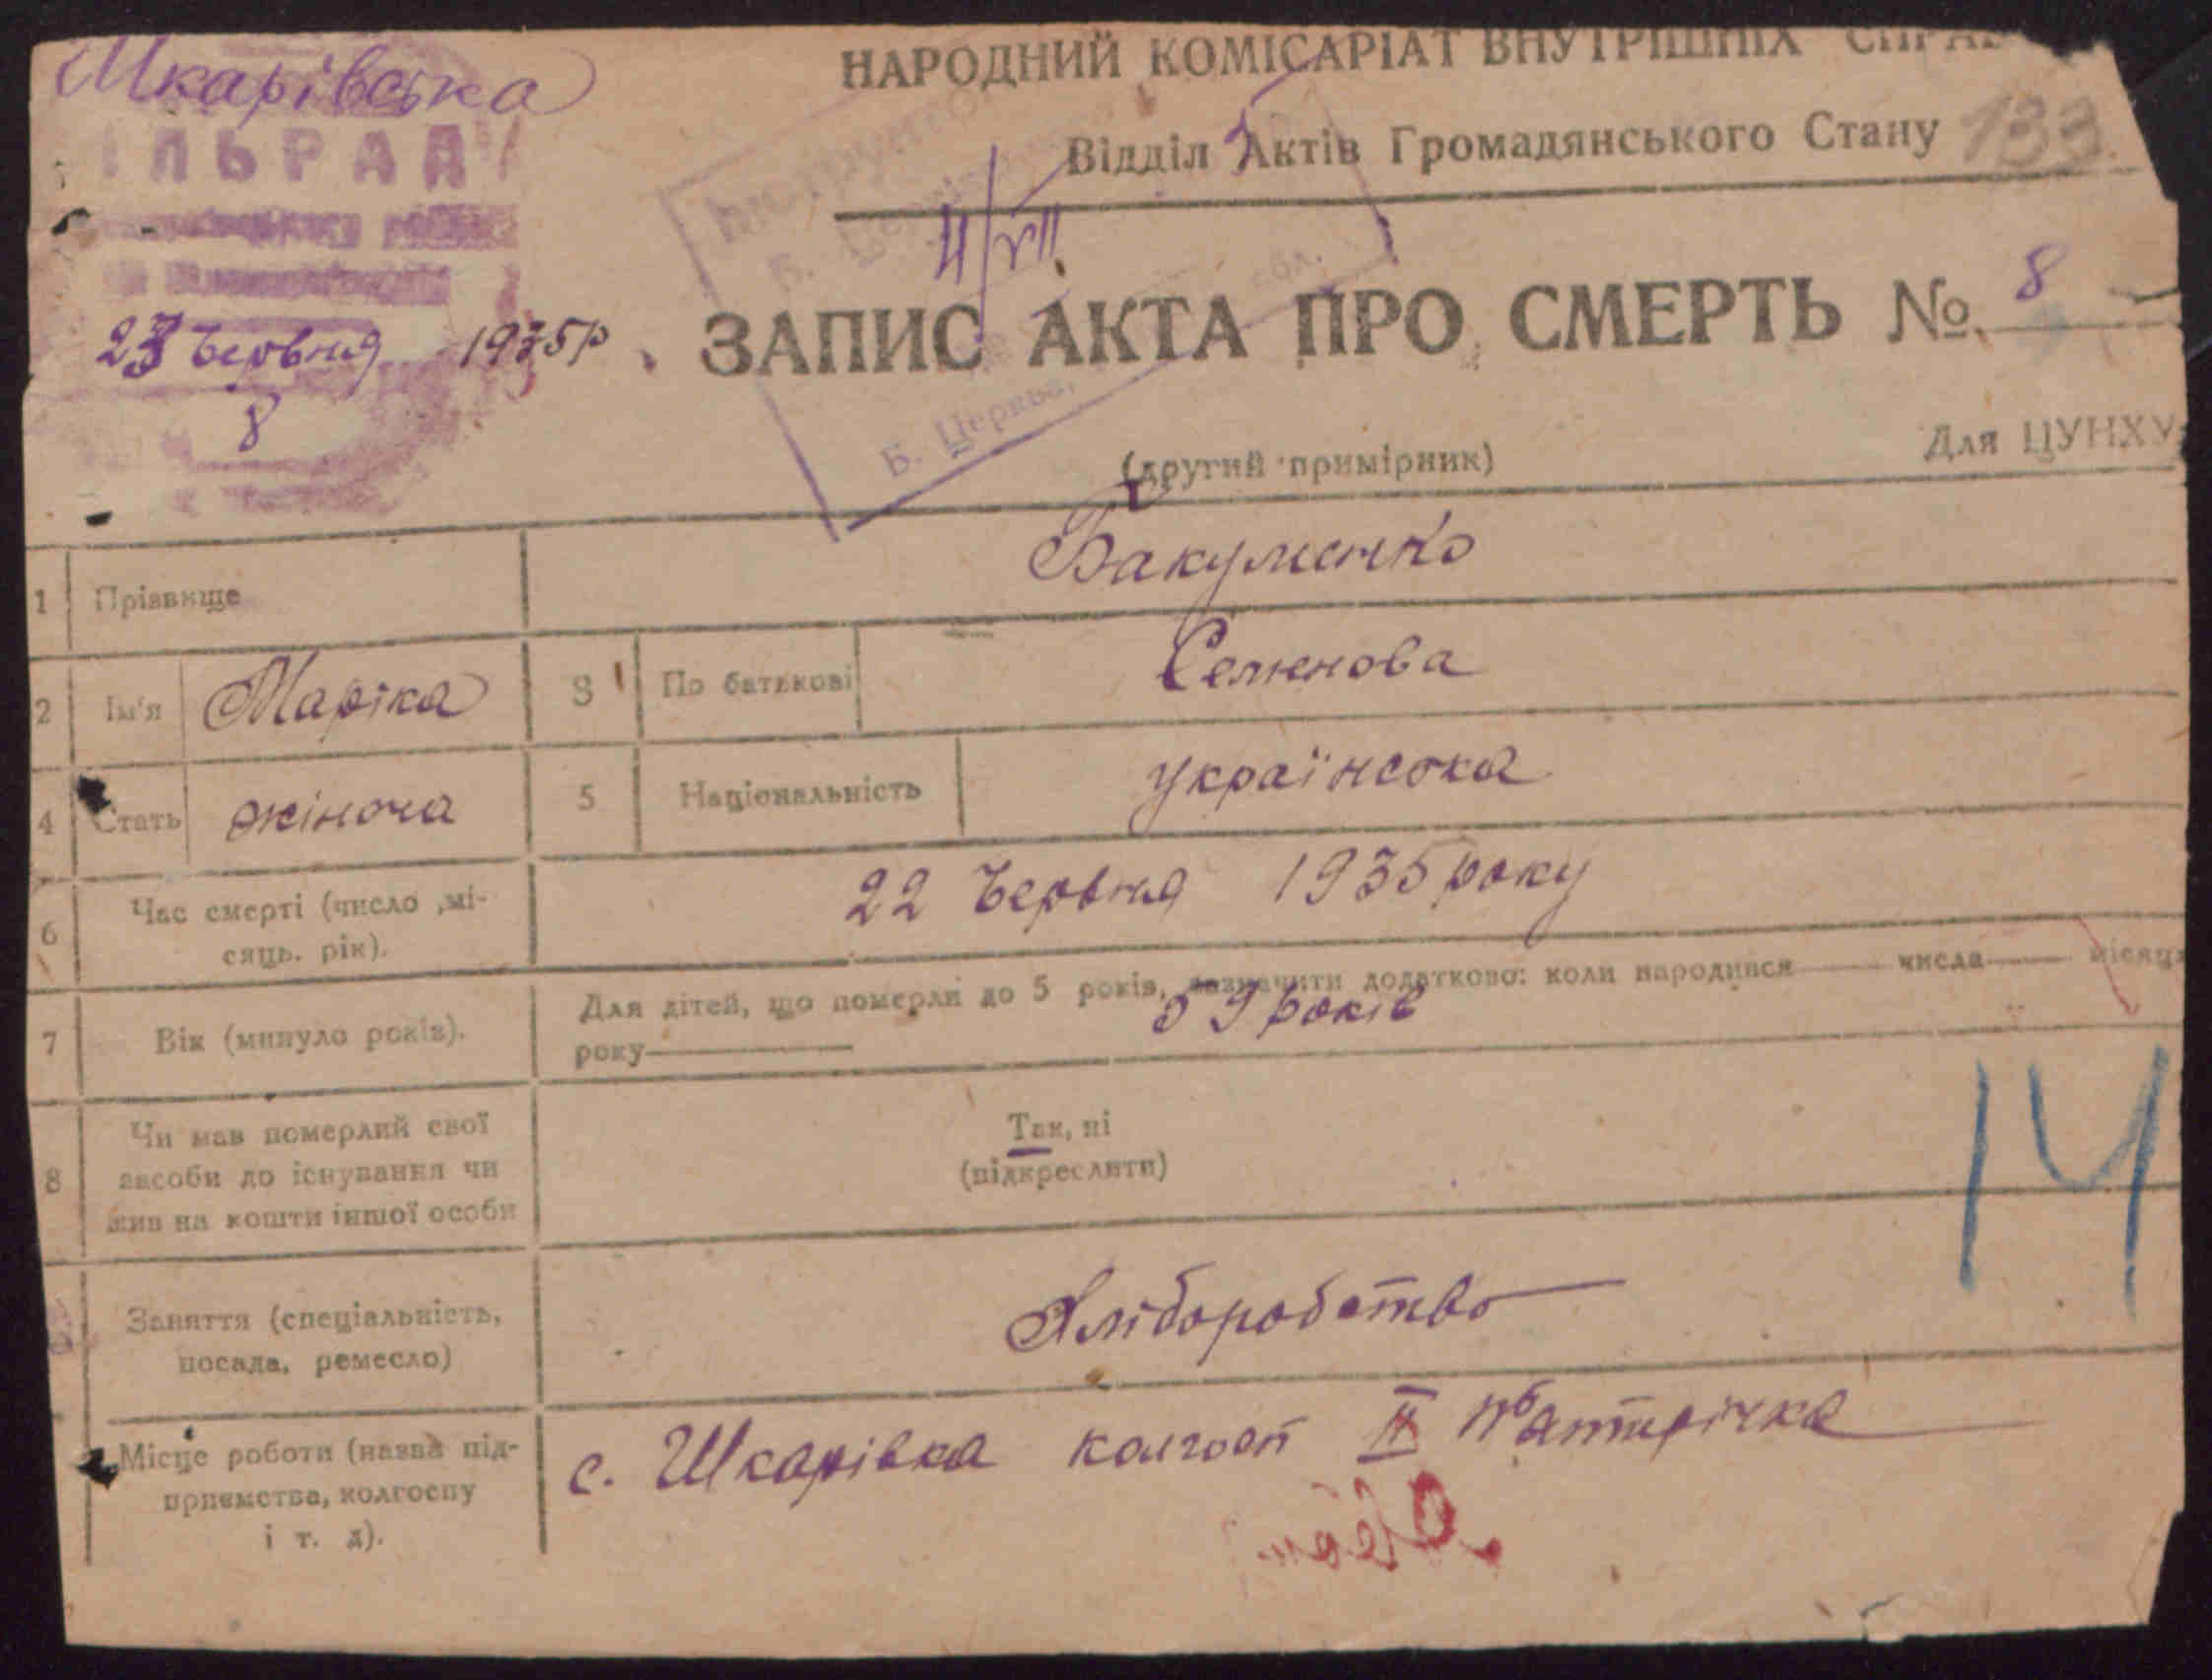 Шкарівська
НАРОДНИЙ КОМІСАРІАТ ВНУТРІШНІХ СПРАВ
ІЛЬРАДА
Відділ Актів Громадянського Стану
133
II/VII
23 Червня 1935р.
ЗАПИС АКТА ПРО СМЕРТЬ № 8
8
Б. Церква
(другий примірник)
Для ЦУНХУ
1 Прізвище Бакуменко
2 Ім'я Маріка 3 По батькові Семенова
4 Стать жіноча 5 Національність українсока
6 Час смерті (число ,мі-
сяць. рік). 22 Червня 1935 року
7 Вік (минуло років). Для дітей, що померли до 5 років, зазначити додатково: коли народився числа місяця
року 59 років
8 Чи мав померлий свої
засоби до існування чи
жив на кошти іншої особи
Так, ні
(підкреслити)
14
Заняття (спеціальність,
посада, ремесло)
Хліборобство
Місце роботи (назва під-
приємства, колгоспу
і т. д).
с. Шкарівка колгосп II П'ятирічка